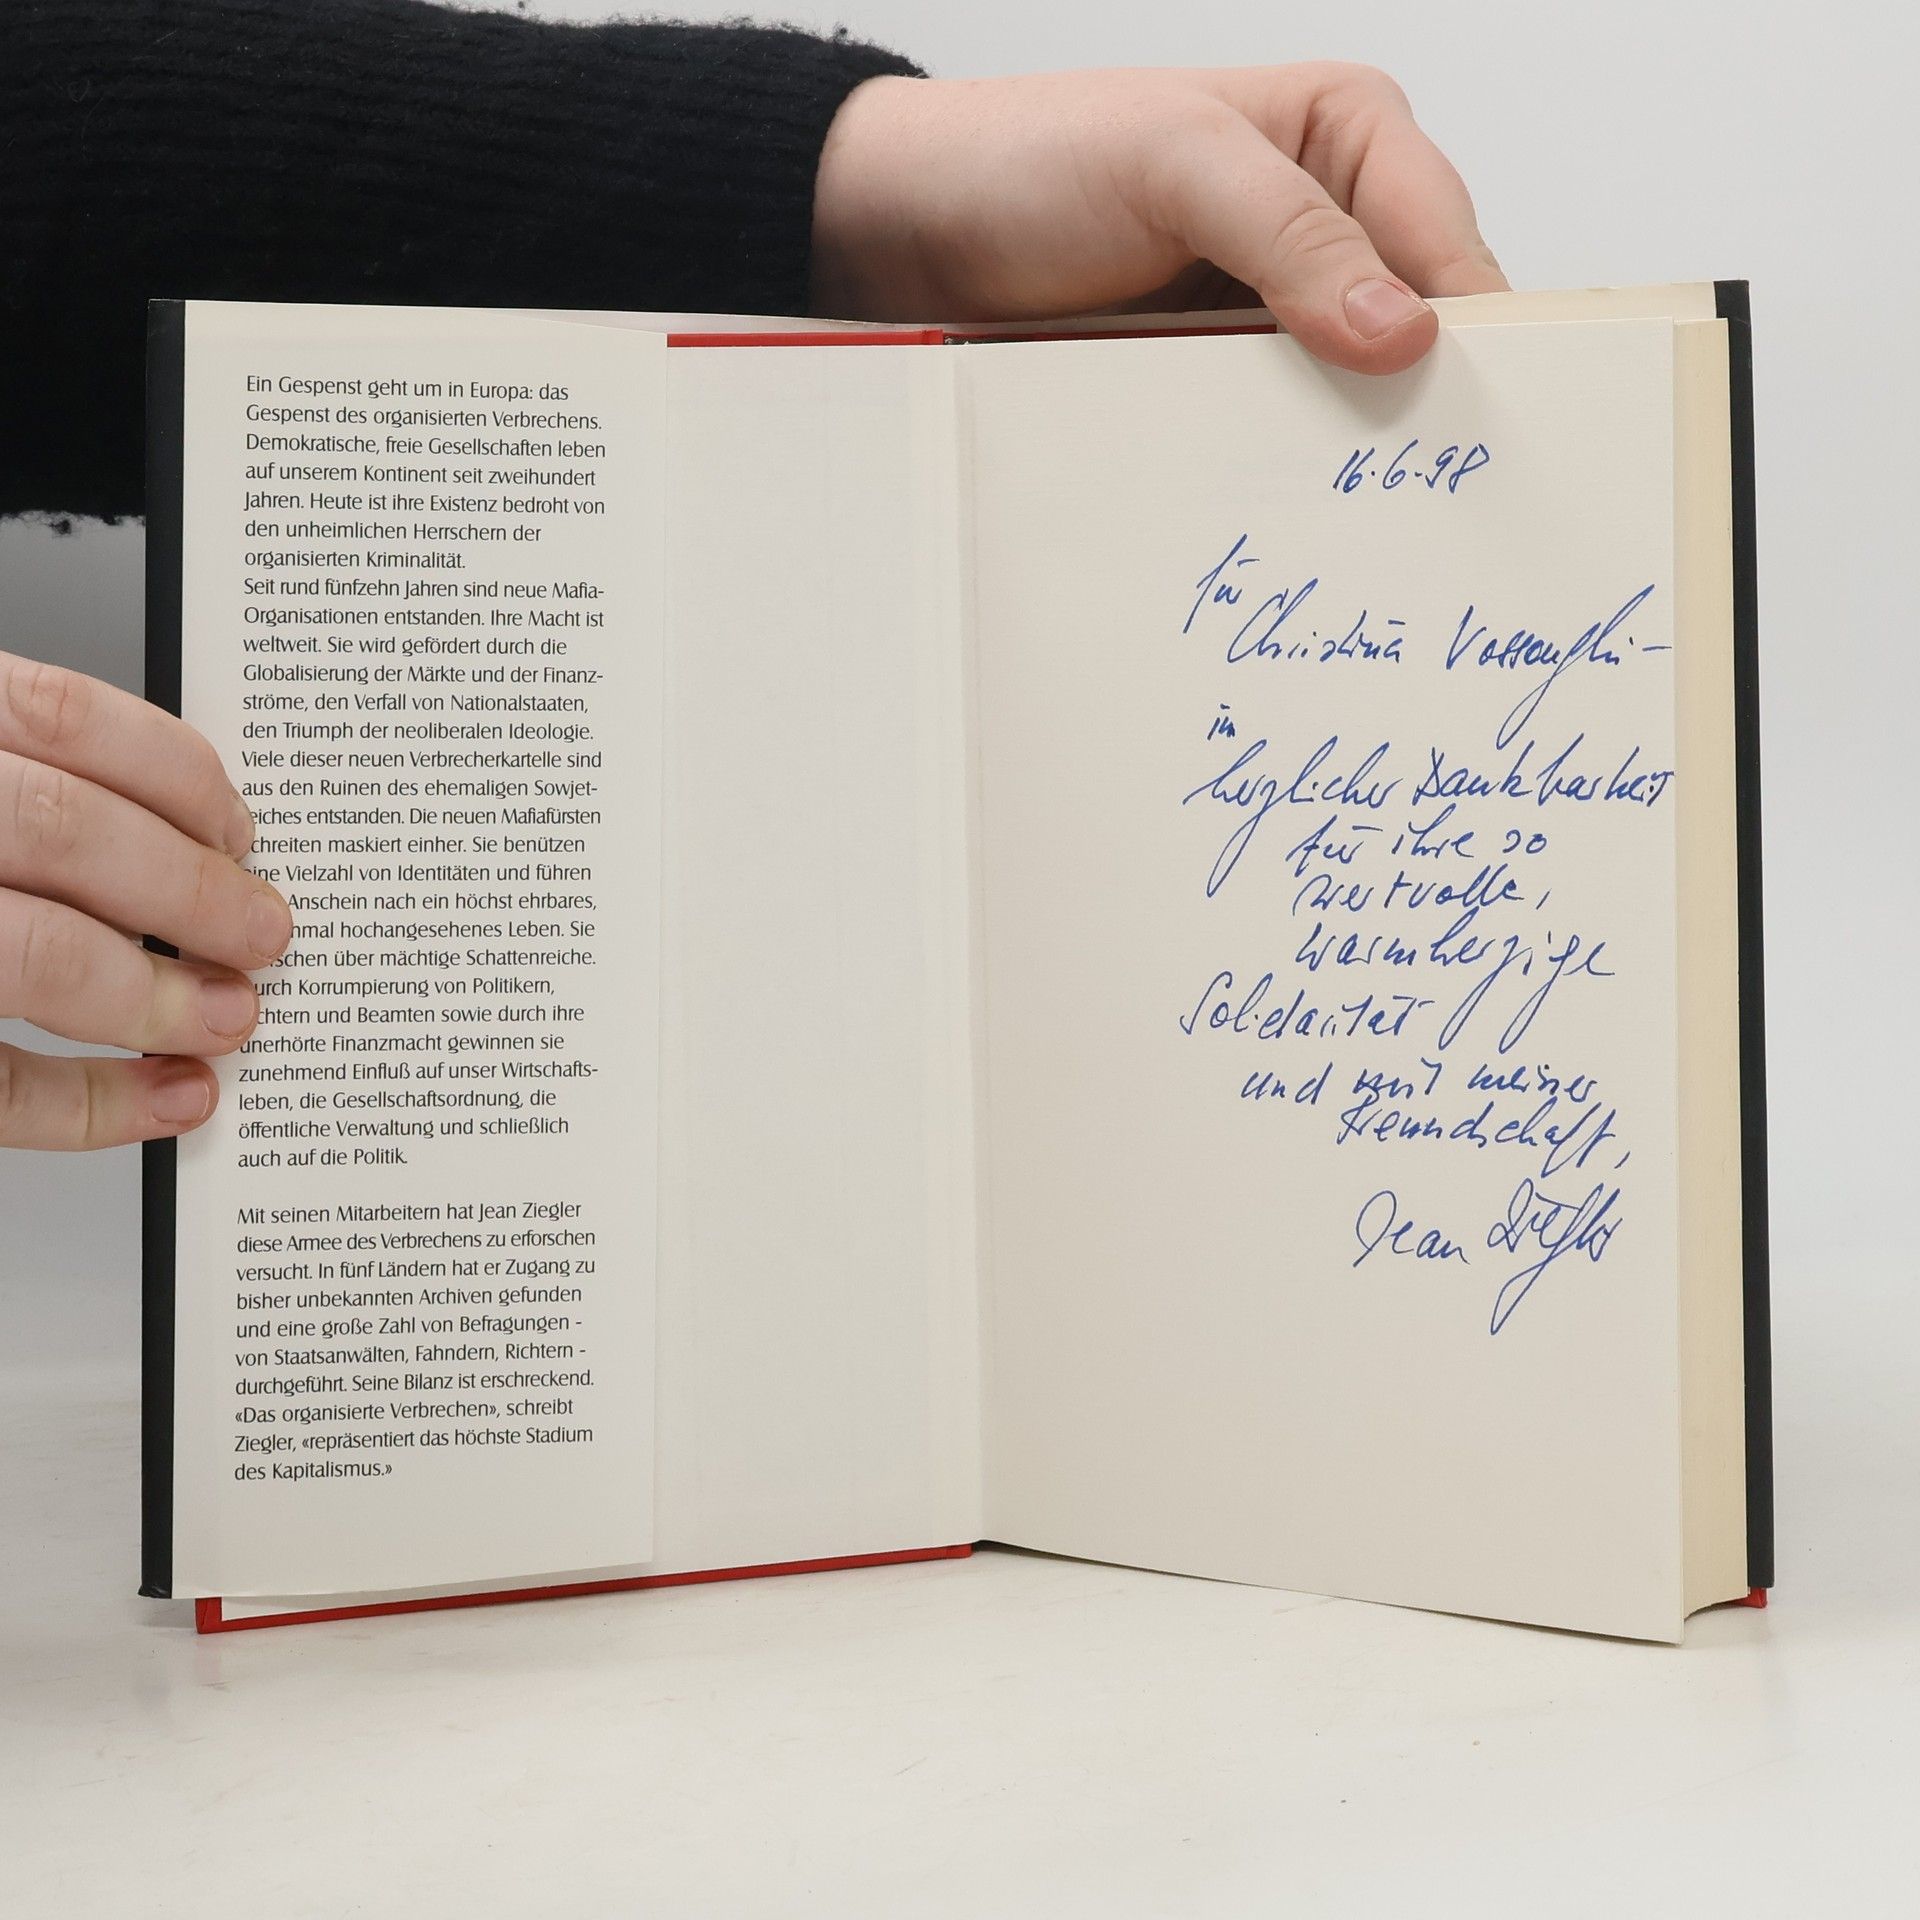 Ein Gespenst geht um in Europa: das
Gespenst des organisierten Verbrechens.
Demokratische, freie Gesellschaften leben
auf unserem Kontinent seit zweihundert
Jahren. Heute ist ihre Existenz bedroht von
den unheimlichen Herrschern der
organisierten Kriminalität.
Seit rund fünfzehn Jahren sind neue Mafia-
Organisationen entstanden. Ihre Macht ist
weltweit. Sie wird gefördert durch die
Globalisierung der Märkte und der Finanz-
ströme, den Verfall von Nationalstaaten,
den Triumph der neoliberalen Ideologie.
Viele dieser neuen Verbrecherkartelle sind
aus den Ruinen des ehemaligen Sowjet-
eiches entstanden. Die neuen Mafiafürsten
chreiten maskiert einher. Sie benützen
ine Vielzahl von Identitäten und führen
Anschein nach ein höchst ehrbares,
nmal hochangesehenes Leben. Sie
schen über mächtige Schattenreiche.
urch Korrumpierung von Politikern,
chtern und Beamten sowie durch ihre
unerhörte Finanzmacht gewinnen sie
zunehmend Einfluß auf unser Wirtschafts-
leben, die Gesellschaftsordnung, die
öffentliche Verwaltung und schließlich
auch auf die Politik.
Mit seinen Mitarbeitern hat Jean Ziegler
diese Armee des Verbrechens zu erforschen
versucht. In fünf Ländern hat er Zugang zu
bisher unbekannten Archiven gefunden
und eine große Zahl von Befragungen -
von Staatsanwälten, Fahndern, Richtern -
durchgeführt. Seine Bilanz ist erschreckend.
«Das organisierte Verbrechen», schreibt
Ziegler, «repräsentiert das höchste Stadium
des Kapitalismus.»
16.6.98
für
Christina
in
herzlicher Dankbarkeit
für ihre so
wertvolle,
warmherzige
Solidarität
und mit meiner
Freundschaft,
Jean Ziegler